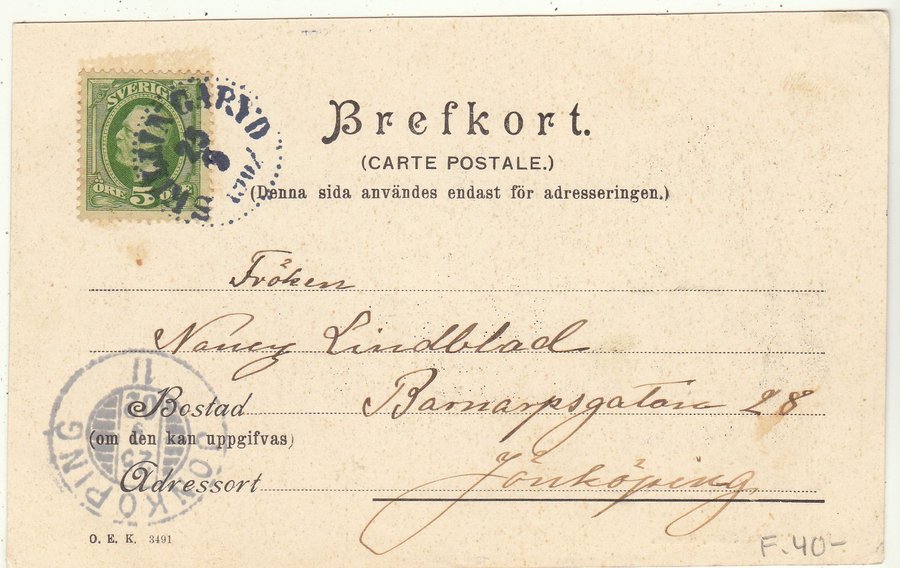 SVERIGE
5
ÖRE ÖRE
SKILLINGARYD
23
8
1902
Brefkort.
(CARTE POSTALE.)
(Denna sida användes endast för adresseringen.)
Fröken
Nancy Lindblad
Bostad Barnarpsgatan 28
(om den kan uppgifvas)
Adressort Jönköping
JÖNKÖPING
11
02
23
O. E. K. 3491
F. 40-